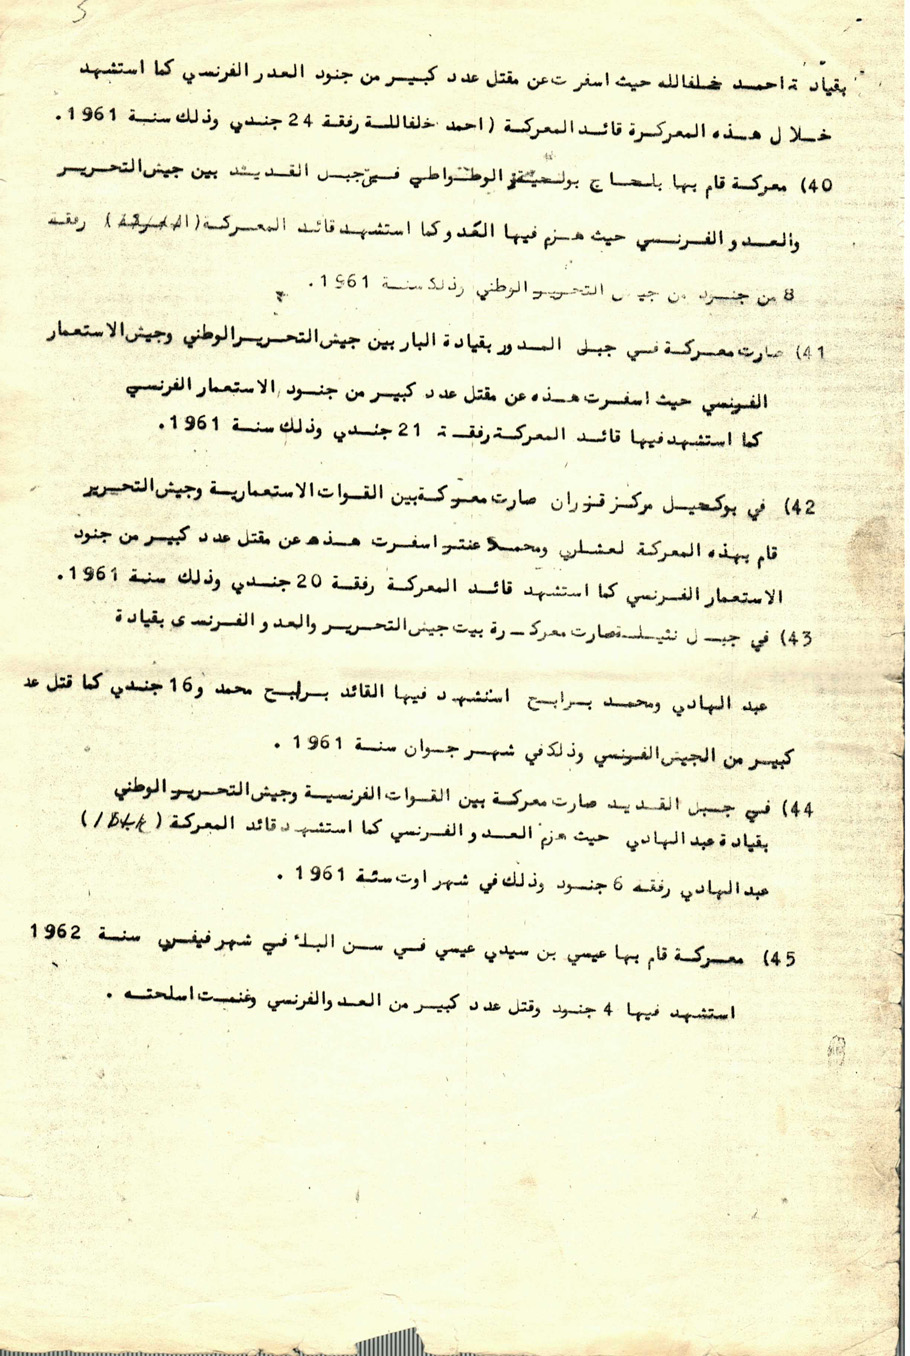 5
بقيادة احمد خلفالله حيث اسفرت عن مقتل عدد كبير من جنود العدر الفرنسي كما استشهد
خلال هذه المعركرة قائد المعركة (احمد خلفاللة رفقة 24 جندي وذلك سنة 1961.
40) معركة قام بها بلحاج الوطواطي في جبل القديد بين جيش التحرير
والعدو الفرنسي حيث هزم فيها العدو كما استشهد قائد المعركة ( ) رفقة
8 من جنود من جيش التحرير الوطني وذلك سنة 1961.
41) صارت معركة في جبل المدور بقيادة البار بين جيش التحرير الوطني وجيش الاستعمار
الفرنسي حيث اسفرت هذه عن مقتل عدد كبير من جنود الاستعمار الفرنسي
كما استشهد فيها قائد المعركة رفقة 21 جندي وذلك سنة 1961.
42) في بوكحيل مركز قنران صارت معركة بين القوات الاستعمارية وجيش التحرير
قام بهذه المعركة لعشلري ومحمد عنتر اسفرت هذه عن مقتل عدد كبير من جنود
الاستعمار الفرنسي كما استشهد قائد المعركة رفقة 20 جندي وذلك سنة 1961.
43) في جبل نثيلة صارت معركرة بيت جيش التحرير والعدو الفرنسى بقيادة
عبد الهادي ومحمد برابح استشهد فيها القائد برابح محمد و16 جندي كما قتل عد
كبير من الجيش الفرنسي وذلك في شهر جوان سنة 1961.
44) في جبل القديد صارت معركة بين القوات الفرنسية وجيش التحرير الوطني
بقيادة عبد الهادي حيث هزم العدو الفرنسي كما استشهد قائد المعركة ( )
عبد الهادي رفقة 6 جنود وذلك في شهر اوت سنة 1961.
45) معركة قام بها عيسي بن سيدي عيسي في سن البلأ في شهر فيفري سنة 1962
استشهد فيها 4 جنود وقتل عدد كبير من العدو الفرنسي وغنمت اسلحته.